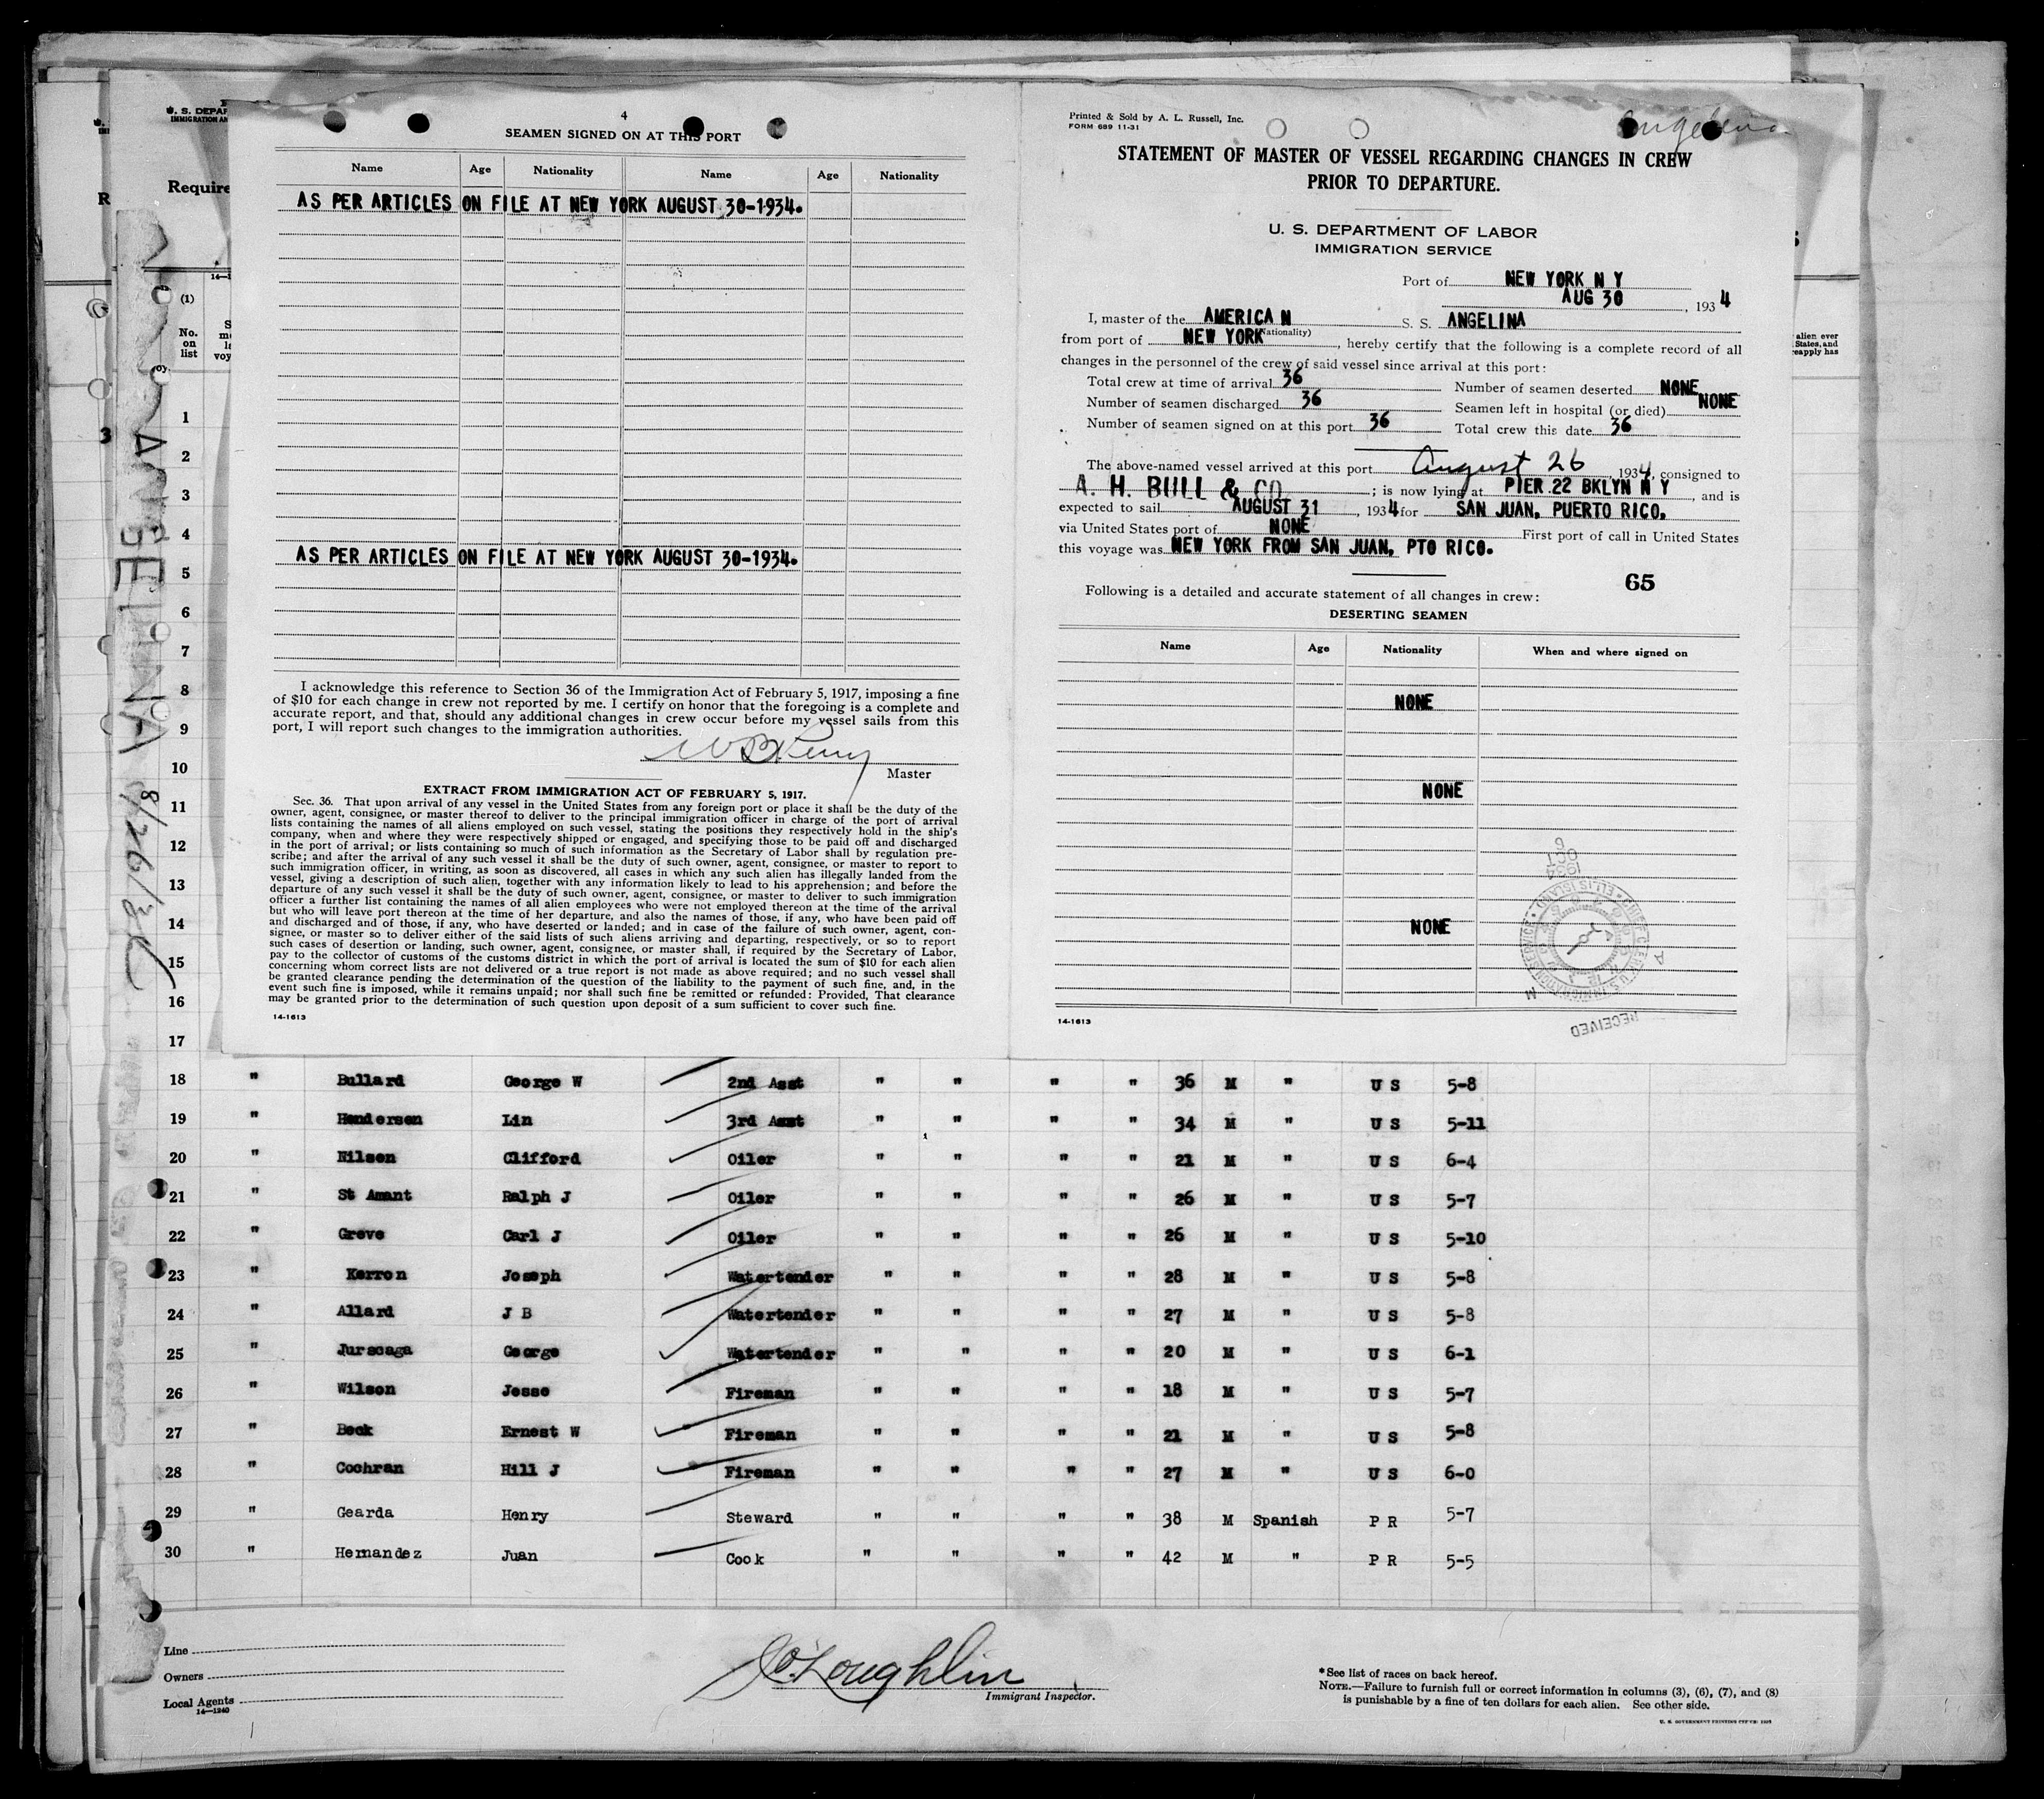 4
SEAMEN SIGNED ON AT THIS PORT
Name Age Nationality Name Age Nationality
AS PER ARTICLES ON FILE AT NEW YORK AUGUST 30-1934.
AS PER ARTICLES ON FILE AT NEW YORK AUGUST 30-1934.
I acknowledge this reference to Section 36 of the Immigration Act of February 5, 1917, imposing a fine
of $10 for each change in crew not reported by me. I certify on honor that the foregoing is a complete and
accurate report, and that, should any additional changes in crew occur before my vessel sails from this
port, I will report such changes to the immigration authorities.
Master
EXTRACT FROM IMMIGRATION ACT OF FEBRUARY 5, 1917.
Sec. 36. That upon arrival of any vessel in the United States from any foreign port or place it shall be the duty of the
owner, agent, consignee, or master thereof to deliver to the principal immigration officer in charge of the port of arrival
lists containing the names of all aliens employed on such vessel, stating the positions they respectively hold in the ship's
company, when and where they were respectively shipped or engaged, and specifying those to be paid off and discharged
in the port of arrival; or lists containing so much of such information as the Secretary of Labor shall by regulation pre-
scribe; and after the arrival of any such vessel it shall be the duty of such owner, agent, consignee, or master to report to
such immigration officer, in writing, as soon as discovered, all cases in which any such alien has illegally landed from the
vessel, giving a description of such alien, together with any information likely to lead to his apprehension; and before the
departure of any such vessel it shall be the duty of such owner, agent, consignee, or master to deliver to such immigration
officer a further list containing the names of all alien employees who were not employed thereon at the time of the arrival
but who will leave port thereon at the time of her departure, and also the names of those, if any, who have been paid off
and discharged and of those, if any, who have deserted or landed; and in case of the failure of such owner, agent, con-
signee, or master so to deliver either of the said lists of such aliens arriving and departing, respectively, or so to report
such cases of desertion or landing, such owner, agent, consignee, or master shall, if required by the Secretary of Labor,
pay to the collector of customs of the customs district in which the port of arrival is located the sum of $10 for each alien
concerning whom correct lists are not delivered or a true report is not made as above required; and no such vessel shall
be granted clearance pending the determination of the question of the liability to the payment of such fine, and, in the
event such fine is imposed, while it remains unpaid; nor shall such fine be remitted or refunded: Provided, That clearance
may be granted prior to the determination of such question upon deposit of a sum sufficient to cover such fine.
14-1613
Printed & Sold by A. L. Russell, Inc.
FORM 689 11-31
Angelina
STATEMENT OF MASTER OF VESSEL REGARDING CHANGES IN CREW
PRIOR TO DEPARTURE.
U. S. DEPARTMENT OF LABOR
IMMIGRATION SERVICE
Port of NEW YORK N Y
AUG 30, 1934
I, master of the AMERICAN S. S. ANGELINA
(Nationality)
from port of NEW YORK, hereby certify that the following is a complete record of all
changes in the personnel of the crew of said vessel since arrival at this port:
Total crew at time of arrival 36 Number of seamen deserted NONE
Number of seamen discharged 36 Seamen left in hospital (or died) NONE
Number of seamen signed on at this port 36 Total crew this date 36
The above-named vessel arrived at this port August 26, 1934, consigned to
A. H. BULL & CO; is now lying at PIER 22 BKLYN N Y, and is
expected to sail AUGUST 31, 1934 for SAN JUAN, PUERTO RICO.
via United States port of NONE First port of call in United States
this voyage was NEW YORK FROM SAN JUAN, PTO RICO.
65
Following is a detailed and accurate statement of all changes in crew:
DESERTING SEAMEN
Name Age Nationality When and where signed on
NONE
NONE
NONE
1934 OCT 6
RECEIVED
14-1613
U. S. DEPAR
IMMIGRATION AN
Require
(1)
No. on list
alien ever
States, and
reapply has
ANGELINA 8/26/34
1
2
3
4
5
6
7
8
9
10
11
12
13
14
15
16
17
18 " Bullard George W 2nd Asst " " " " 36 M " U S 5-8
19 " Hendersen Lin 3rd Asst " " " " 34 M " U S 5-11
20 " Nilsen Clifford Oiler " " " " 21 M " U S 6-4
21 " St Amant Ralph J Oiler " " " " 26 M " U S 5-7
22 " Greve Carl J Oiler " " " " 26 M " U S 5-10
23 " Kerron Joseph Watertender " " " " 28 M " U S 5-8
24 " Allard J B Watertender " " " " 27 M " U S 5-8
25 " Juracaga George Watertender " " " " 20 M " U S 6-1
26 " Wilson Jesse Fireman " " " " 18 M " U S 5-7
27 " Beck Ernest W Fireman " " " " 21 M " U S 5-8
28 " Cochran Hill J Fireman " " " " 27 M " U S 6-0
29 " Gearda Henry Steward " " " " 38 M Spanish P R 5-7
30 " Hernandez Juan Cook " " " " 42 M " P R 5-5
Line
Owners
Local Agents
14-1240
O'Loughlin
Immigrant Inspector.
*See list of races on back hereof.
NOTE.—Failure to furnish full or correct information in columns (3), (6), (7), and (8)
is punishable by a fine of ten dollars for each alien. See other side.